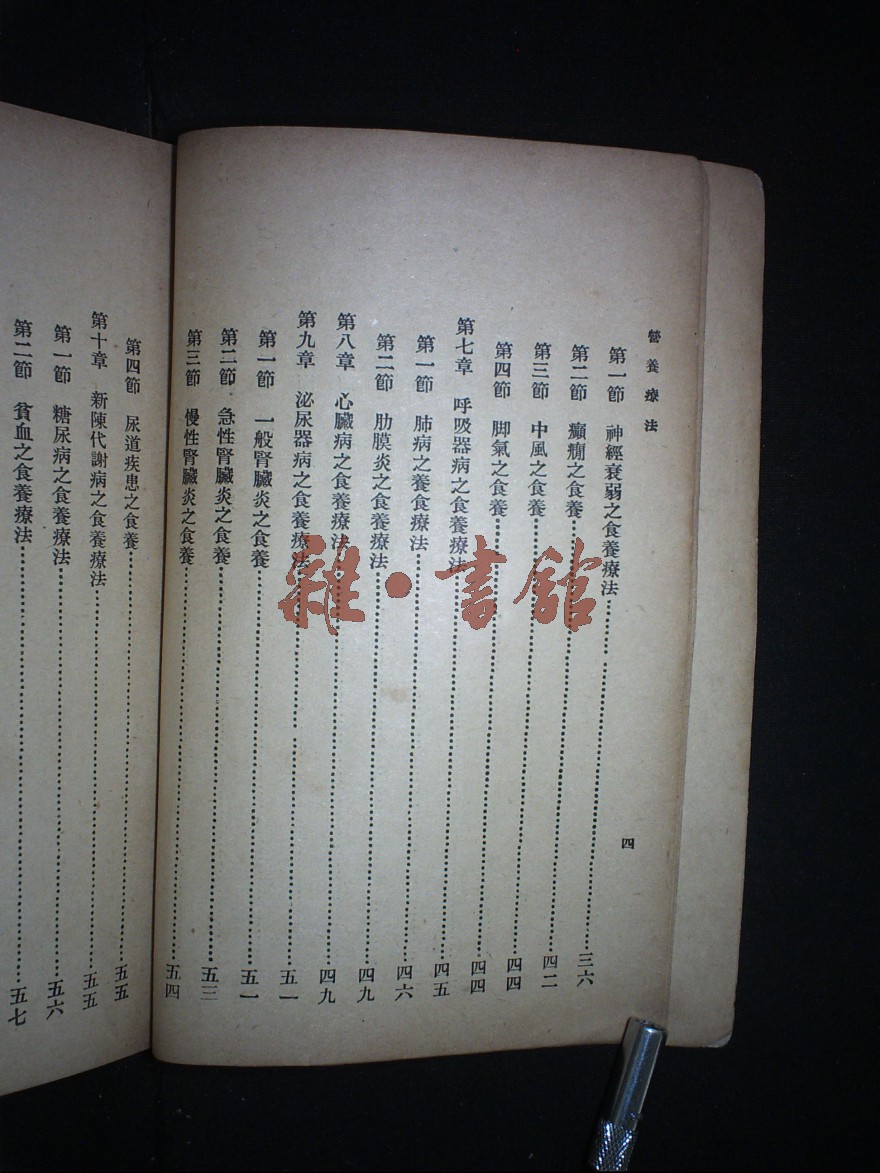 營養療法
四
第一節 神經衰弱之食養療法 三六
第二節 癲癇之食養 四二
第三節 中風之食養 四四
第四節 脚氣之食養 四四
第七章 呼吸器病之食養療法 四五
第一節 肺病之養食療法 四六
第二節 肋膜炎之食養療法 四九
第八章 心臟病之食養療法 四九
第九章 泌尿器病之食養療法 五一
第一節 一般腎臟炎之食養 五一
第二節 急性腎臟炎之食養 五三
第三節 慢性腎臟炎之食養 五四
第四節 尿道疾患之食養 五五
第十章 新陳代謝病之食養療法 五五
第一節 糖尿病之食養療法 五六
第二節 貧血之食養療法 五七
雜·書館